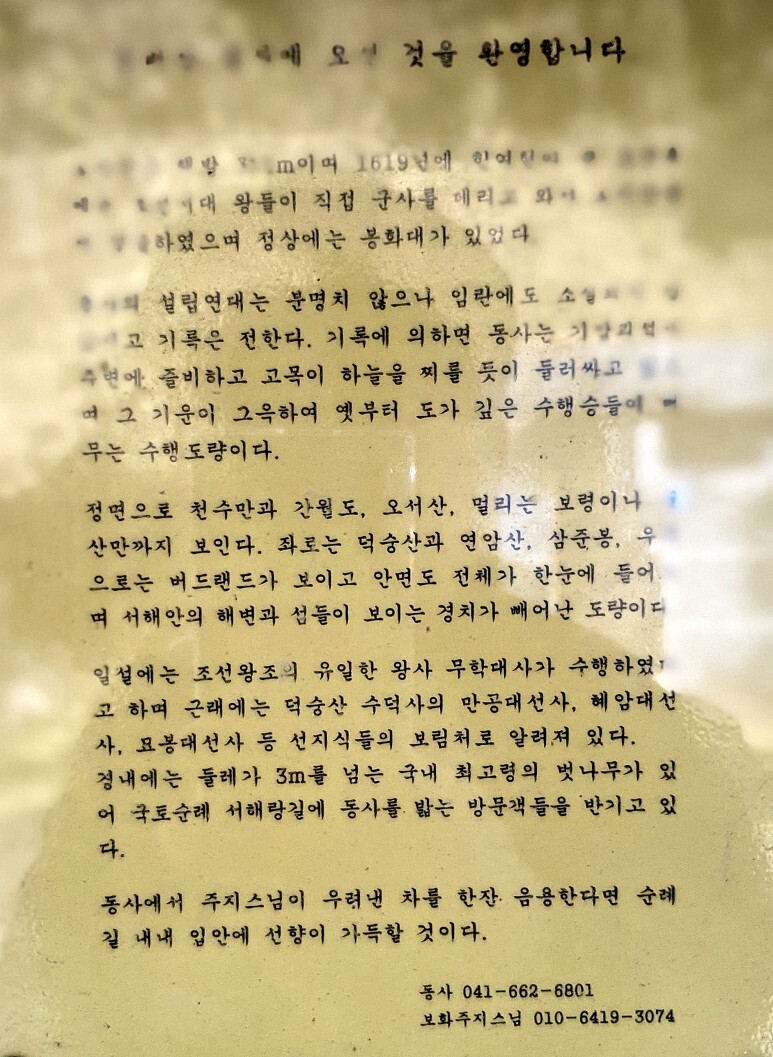 오신 것을 환영합니다
해발 m이며 1619년에
왕들이 직접 군사를 데리고 와서
하였으며 정상에는 봉화대가 있었다
설립연대는 분명치 않으나 임란에도
고 기록은 전한다. 기록에 의하면 동사는
주변에 즐비하고 고목이 하늘을 찌를 듯이 둘러싸고
며 그 기운이 그윽하여 옛부터 도가 깊은 수행승들이 머
무는 수행도량이다.
정면으로 천수만과 간월도, 오서산, 멀리는 보령이나
산만까지 보인다. 좌로는 덕숭산과 연암산, 삼준봉, 우
으로는 버드랜드가 보이고 안면도 전체가 한눈에 들어
며 서해안의 해변과 섬들이 보이는 경치가 빼어난 도량이다
일설에는 조선왕조의 유일한 왕사 무학대사가 수행하였다
고 하며 근래에는 덕숭산 수덕사의 만공대선사, 혜암대선
사, 묘봉대선사 등 선지식들의 보림처로 알려져 있다.
경내에는 둘레가 3m를 넘는 국내 최고령의 벗나무가 있
어 국토순례 서해랑길에 동사를 밟는 방문객들을 반기고 있
다.
동사에서 주지스님이 우려낸 차를 한잔 음용한다면 순례
길 내내 입안에 선향이 가득할 것이다.
동사 041-662-6801
보화주지스님 010-6419-3074